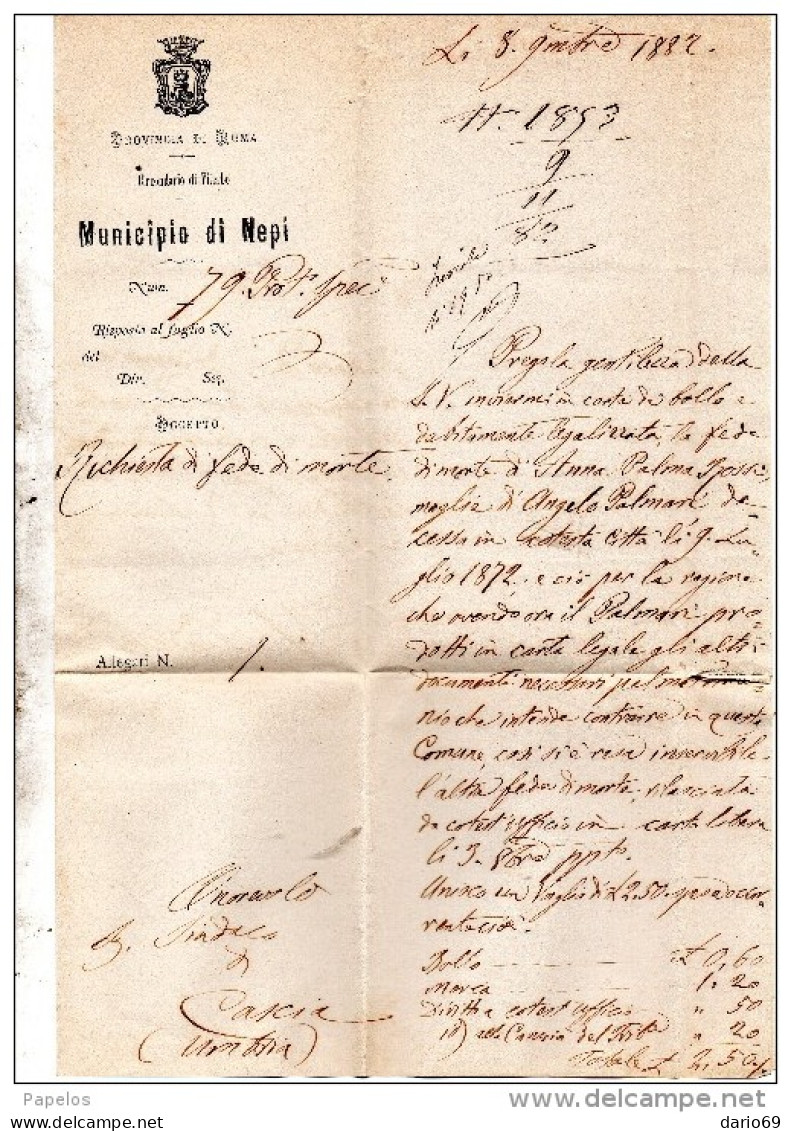 Li 8. 9mbre 1882.
N. 1853
9
11
82
PROVINCIA DI ROMA
Municipio di Nepi
Num. 79. Prot. Spec.
Risposta al foglio N.
del
Div. Sez.
OGGETTO
Richiesta di fede di morte.
Allegati N. 1.
Pregola gentilezza della
S.V. inviarmi in carta da bollo e
debitamente legalizzata, la fede
di morte d'Anna Palma Rossi
moglie d'Angelo Palmari de-
cessa in cotesta città li 9. Lu-
glio 1872. e ciò per la ragione
che avendo ora il Palmari pro-
dotti in carta legale gli altri
documenti necessari pel matrimo-
nio che intende contrarre in questo
Comune, così si è resa inservibile
l'altra fede di morte, rilasciata
da cotest'ufficio in carta libera
li 3. 8bre ppto.
Unisco un vaglia di £ 2,50. spesa occor-
Bollo £ 0,60
Marca 1.20
Diritti a cotest'ufficio " 50
id alla Canc.ria del Trib.e " 20
Totale £ 2,50
Onorevole
Sig. Sindaco
di
Cascia
(Umbria)
Papelos
delcampe.net
dario69